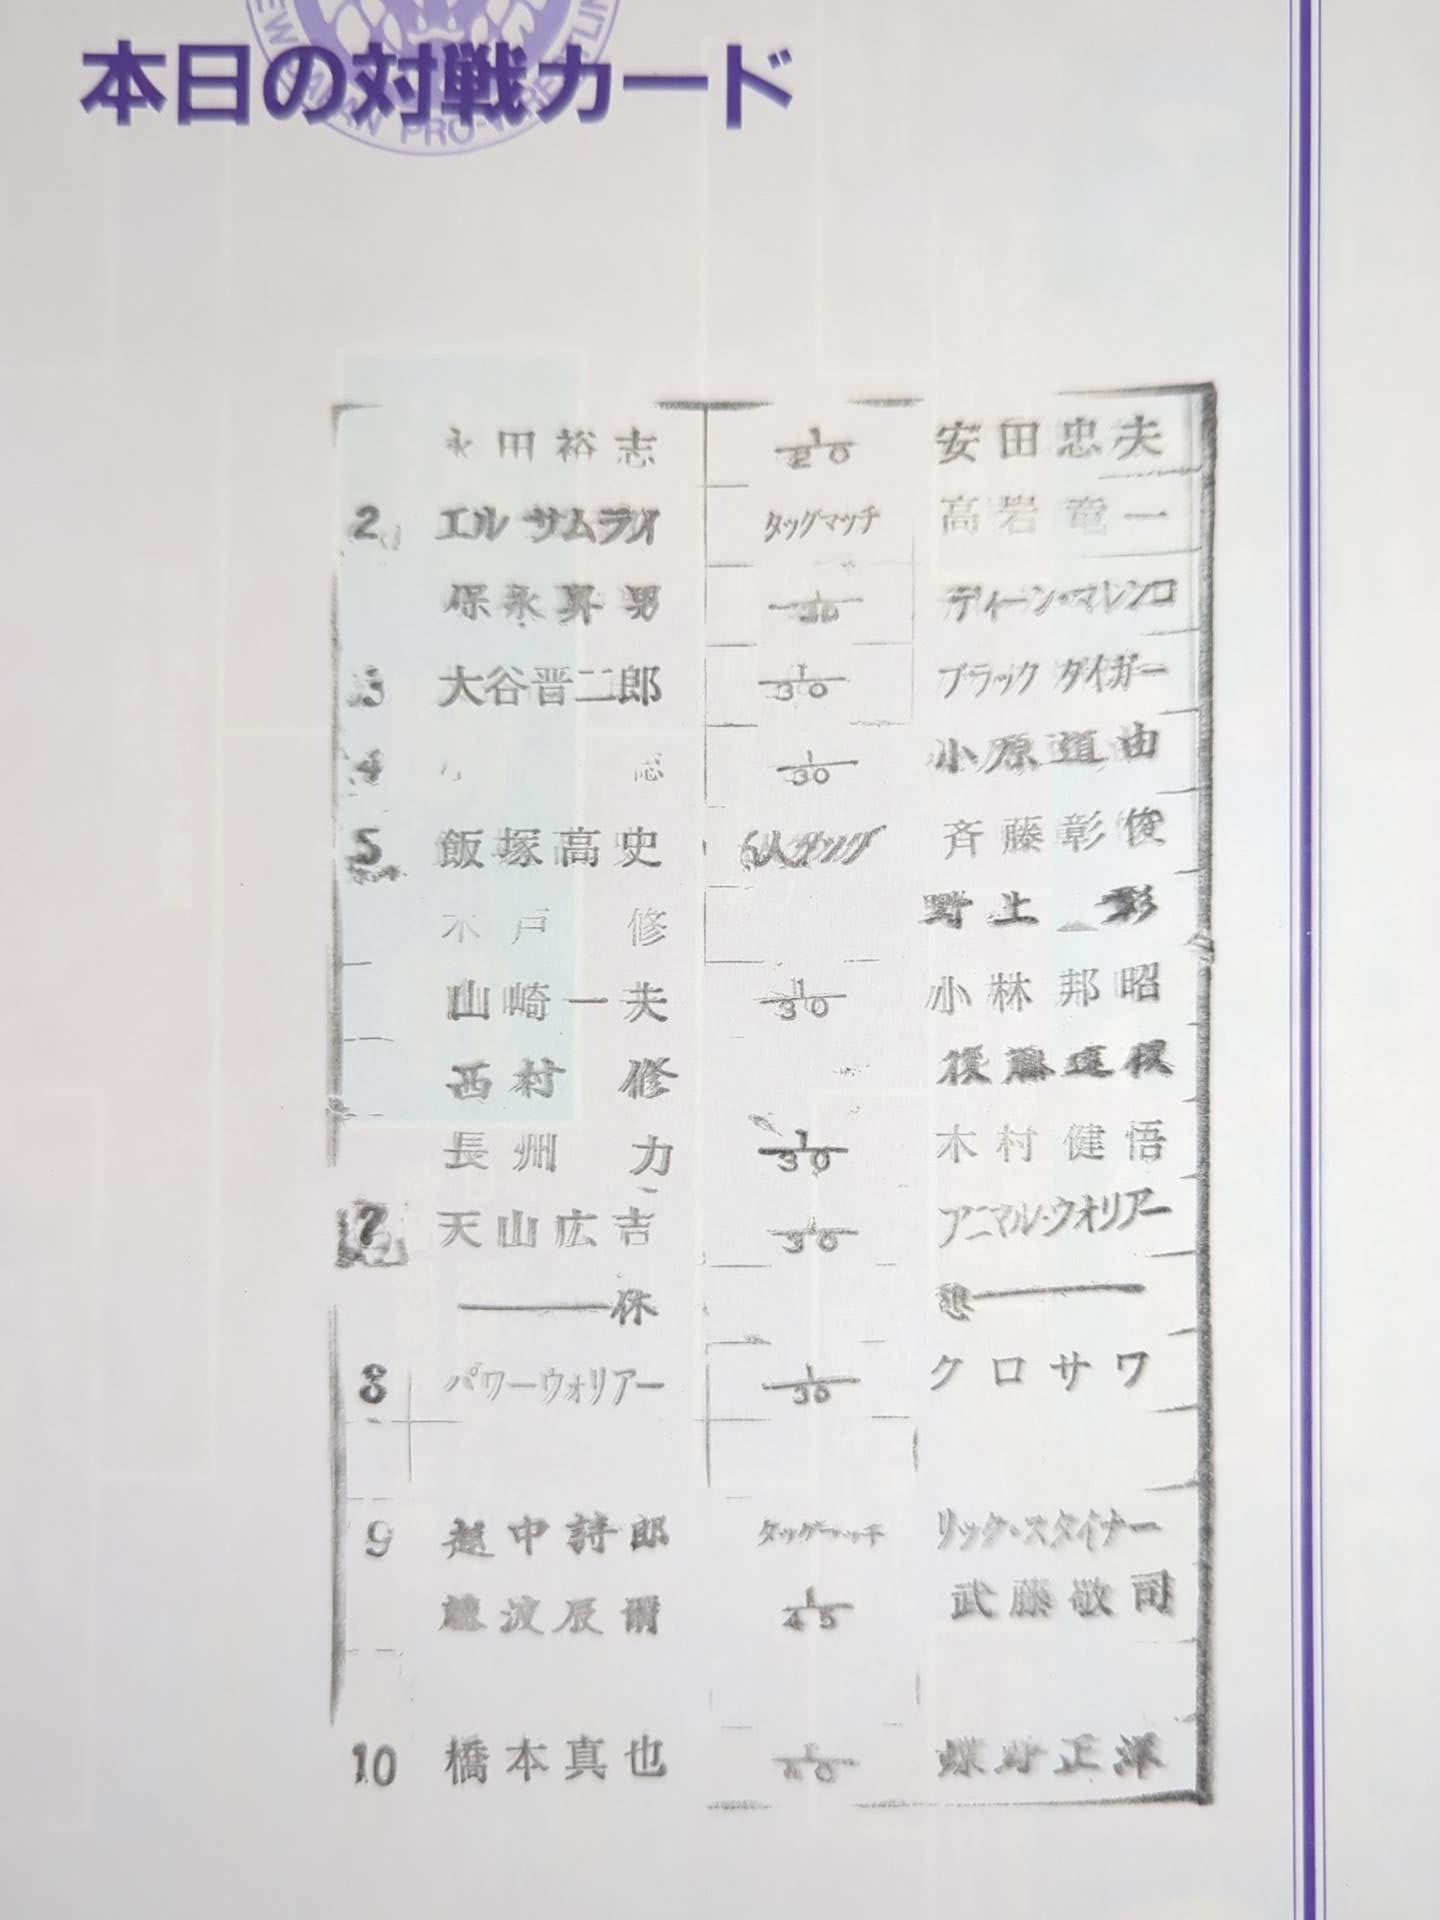 本日の対戦カード
永田裕志 1/20 安田忠夫
2 エル サムライ タッグマッチ 高岩竜一
保永昇男 1/30 ディーン・マレンコ
3 大谷晋二郎 1/30 ブラック タイガー
4 1/30 小原道由
5 飯塚高史 6人タッグ 斉藤彰俊
木戸 修 野上 彰
山崎一夫 1/30 小林邦昭
西村 修 後藤達俊
長州 力 1/30 木村健悟
7 天山広吉 1/30 アニマル・ウォリアー
休 憩
8 パワーウォリアー 1/30 クロサワ
9 越中詩郎 タッグマッチ リック・スタイナー
藤波辰爾 1/45 武藤敬司
10 橋本真也 蝶野正洋